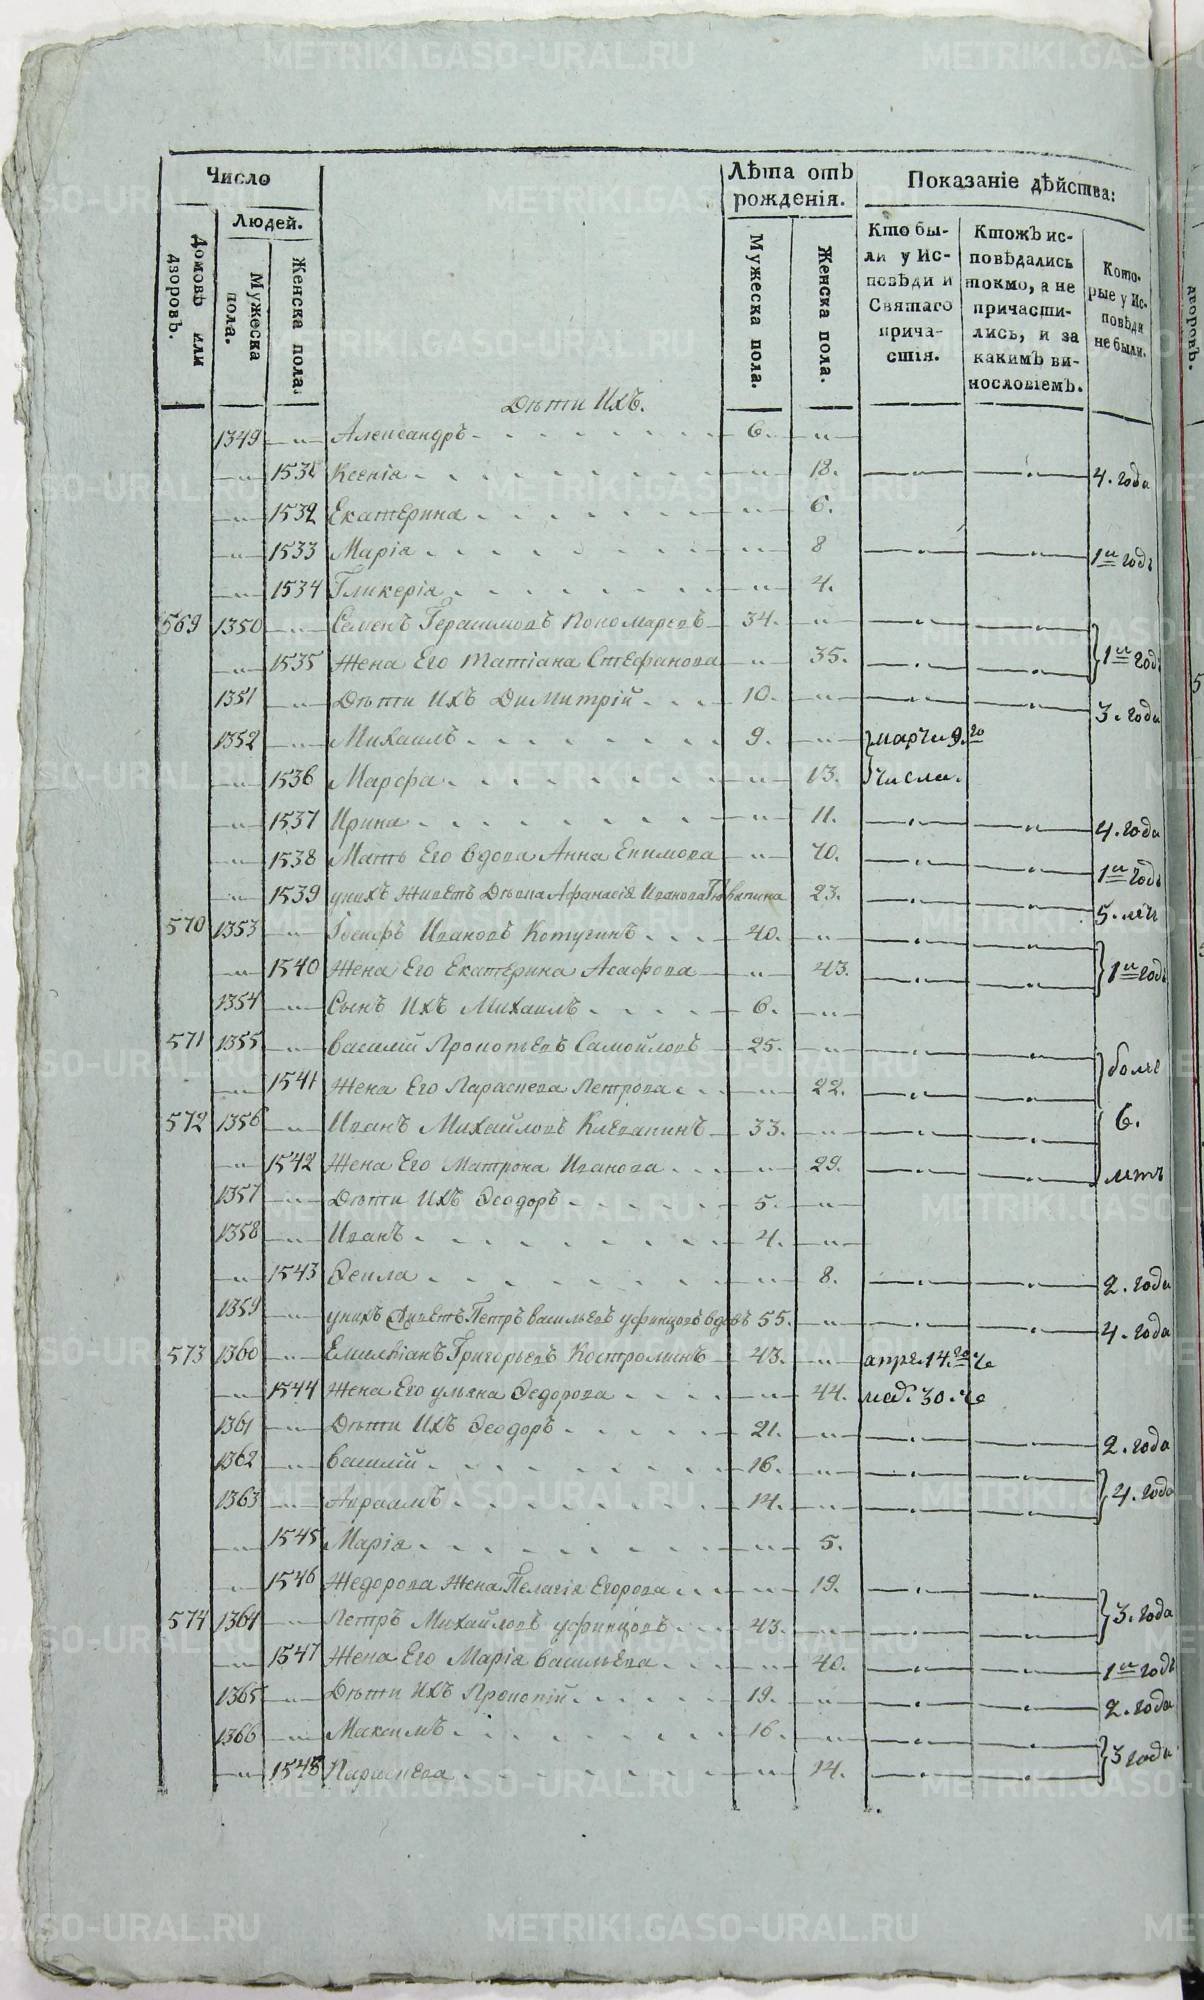 Число
Лѣта отъ рожденія.
Показаніе дѣйства:
Домовъ или дворовъ.
Людей.
Мужеска пола.
Женска пола.
Мужеска пола.
Женска пола.
Кто были у Исповѣди и Святаго причастія.
Ктожъ исповѣдались токмо, а не причастились, и за какимъ винословіемъ.
Которые у Исповѣди не были.
Дѣти ихъ.
1349 Александръ 6.
1531 Ксенія 18. 4. года
1532 Екатерина 6.
1533 Марія 8 1й годъ
1534 Гликерія 4.
569 1350 Семенъ Герасимовъ Пономаревъ 34.
1535 Жена Его Татіана Стефанова 35. 1й годъ
1351 Дѣти ихъ Димитрій 10. 3. года
1352 Михаилъ 9. марта 9.го
1536 Марфа 13. числа.
1537 Ирина 11. 4. года
1538 Мать Его вдова Анна Екимова 70. 1й годъ
1539 у нихъ живетъ Дѣвка Афанасія Иванова 23. 5. лѣтъ
570 1353 Іосифъ Ивановъ Котугинъ 40.
1540 Жена Его Екатерина Асафова 43. 1й годъ
1354 Сынъ ихъ Михаилъ 6.
571 1355 Василій Прокопьевъ Самойловъ 25.
1541 Жена Его Параскева Петрова 22. болѣе
572 1356 Иванъ Михайловъ Клевакинъ 33. 6.
1542 Жена Его Матрона Иванова 29. лѣтъ
1357 Дѣти ихъ Ѳеодоръ 5.
1358 Иванъ 4.
1543 Ѳекла 8. 2. года
1359 у нихъ живетъ Петръ Васильевъ Уфинцовъ вдовъ 55. 4. года
573 1360 Емилліанъ Григорьевъ Костроминъ 43. апрѣ. 14.го че
1544 Жена Его Ульяна Ѳедорова 44. 30. че
1361 Дѣти ихъ Ѳеодоръ 21. 2. года
1362 Василій 16.
1363 Авраамъ 14. 4. года
1545 Марія 5.
1546 Ѳедорова Жена Пелагія Егорова 19.
574 1364 Петръ Михайловъ Уфинцовъ 43. 3. года
1547 Жена Его Марія Васильева 40. 1й годъ
1365 Дѣти ихъ Прокопій 19. 2. года
1366 Максимъ 16.
1548 Параскева 14. 3 года
METRIKI.GASO-URAL.RU